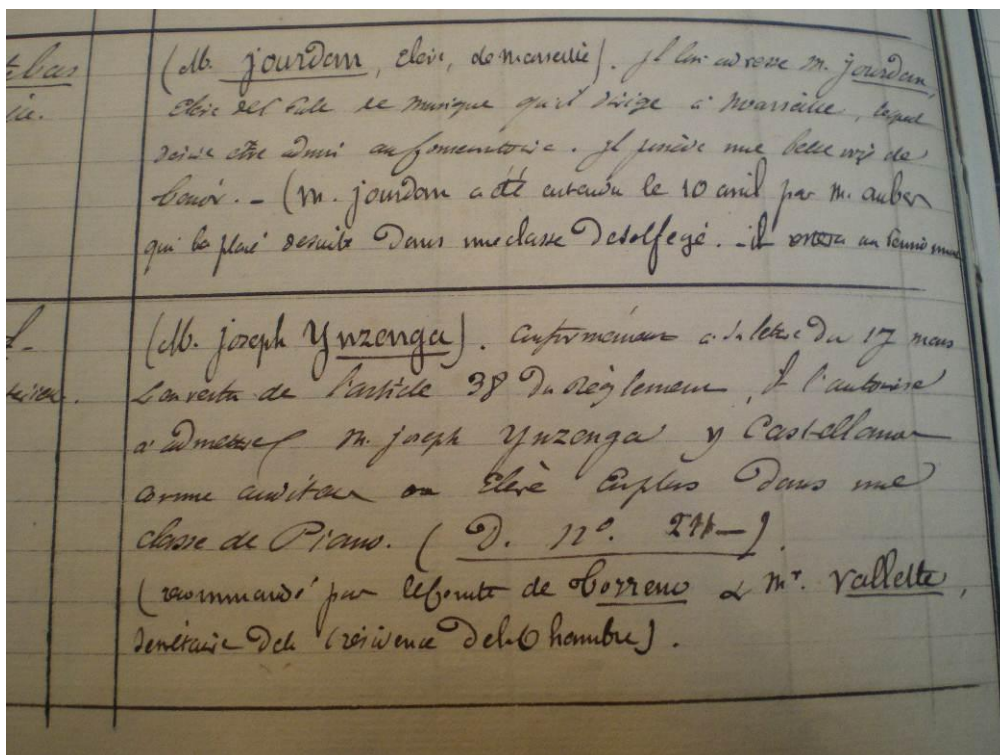 (M. jourdan, Elève, de marseille). Il lui adresse M. jourdan,
Elève de l'Ecole de musique qu'il dirige à marseille, lequel
désire être admis au Conservatoire. Il possède une belle voix de
ténor. - (M. jourdan a été entendu le 10 avril par M. auber
qui l'a placé desuite Dans une classe De solfege. - il
(M. joseph Ynzenga). Conformément à sa lettre Du 17 mars
en vertu de l'article 38 Du Règlement, Il l'autorise
à admettre M. joseph Ynzenga y Castellanos
comme auditeur ou Elève Dans une
classe de Piano. ( D. n°.
(recommandé par le Comte de Torreno & Mr. Vallette,
Secrétaire De la Présidence De la Chambre).